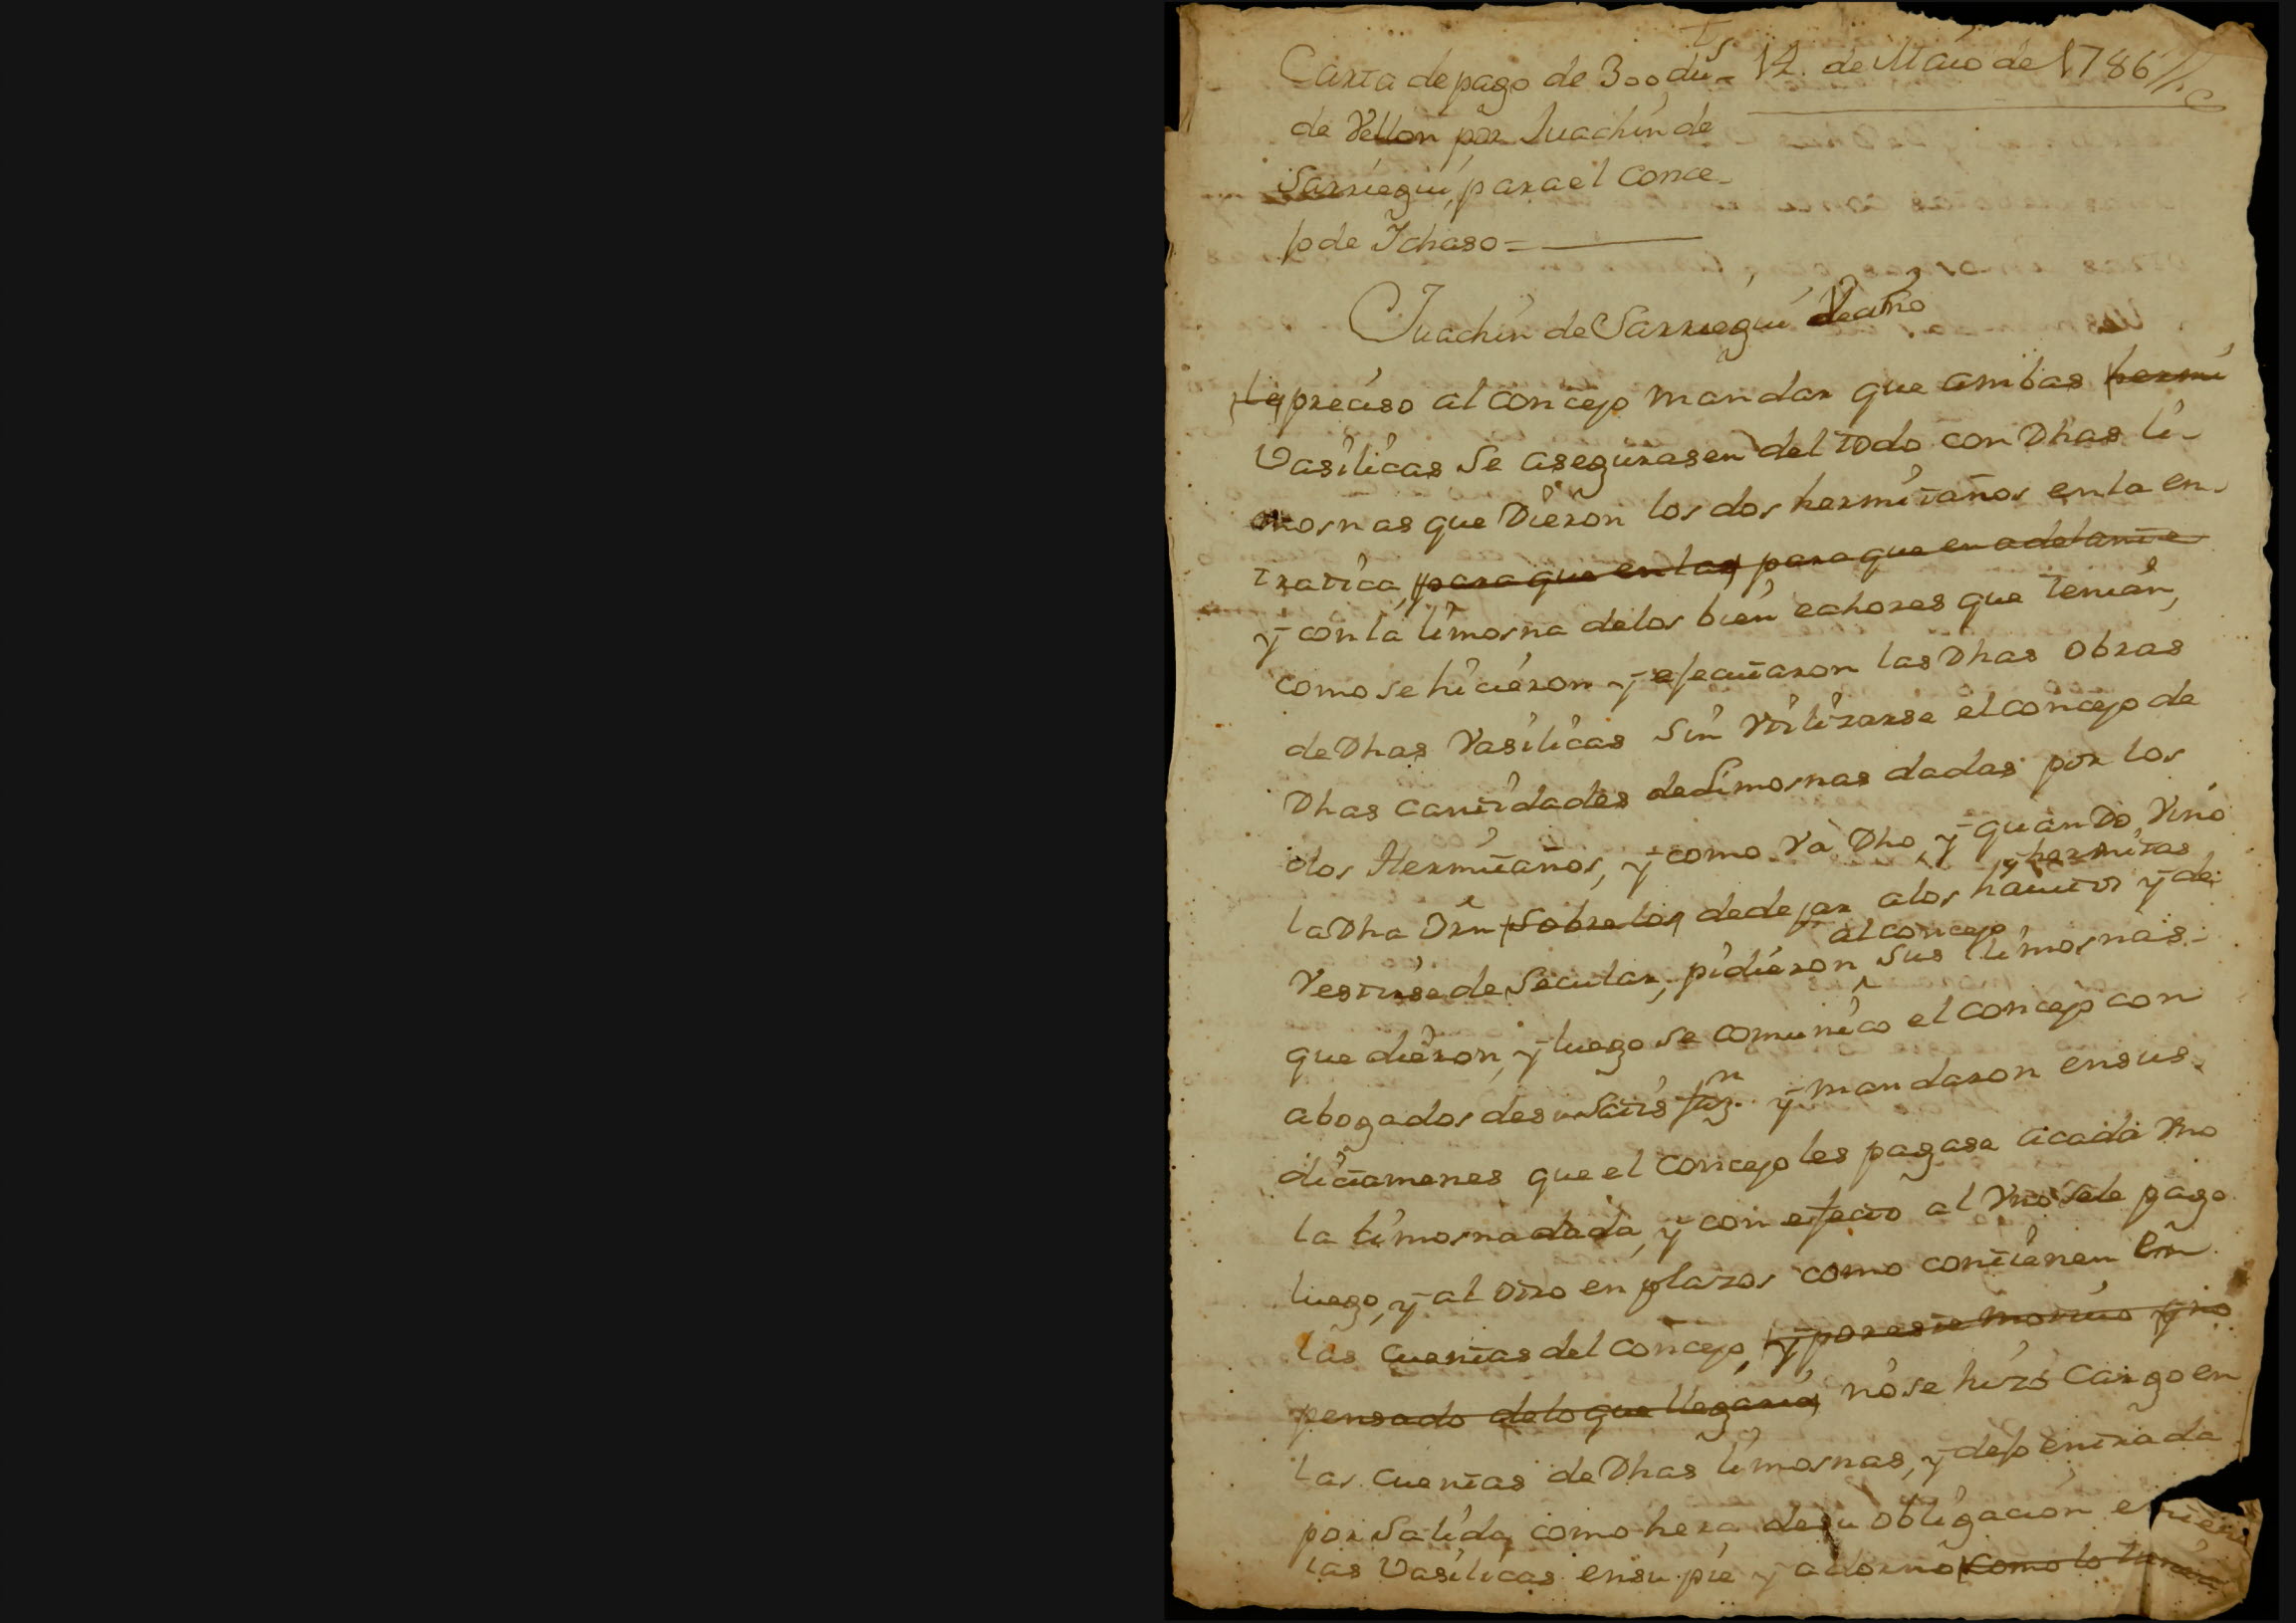 Carta de pago de 300 du.ts 12. de Maio de 1786
de Vellon por Juachin de
Sarriegui, para el conce-
jo de Ichaso =
Juachin de Sarriegui Vecino
le preciso al concejo mandar que ambas hermi
Vasilicas se asegurasen del todo con Dhas li-
mosnas que Dieron los dos hermitaños en la en-
tratica, para que en las para que en adelante
y con la limosna de los bien echores que tenian,
como se hicieron y efecutaron las Dhas obras
de Dhas Vasilicas sin Vtilizarse el concejo de
Dhas cantidades de limosnas dadas por los
dos Hermitaños, y como Va Dho, y quando, Vino
y hermitas
la Dha Orn sobre los de dejar a los havitos y de
al concejo
Vestirse de Secular, pidieron sus limosnas
que dieron, y luego se comunico el concejo con
abogados de su satisfaz.n y mandaron en sus
dictamenes que el concejo les pagase a cada Vno
la limosna dada, y con efecto al Vno se le pago
luego, y al otro en plazos como contienen En
las cuentas del concejo, y por este motivo y no
pensado de lo que llegaria, no se hizo cargo en
las cuentas de Dhas limosnas, y dejo entrada
por Salida, como hera de su obligacion
las Vasilicas en su pie y adorno como lo